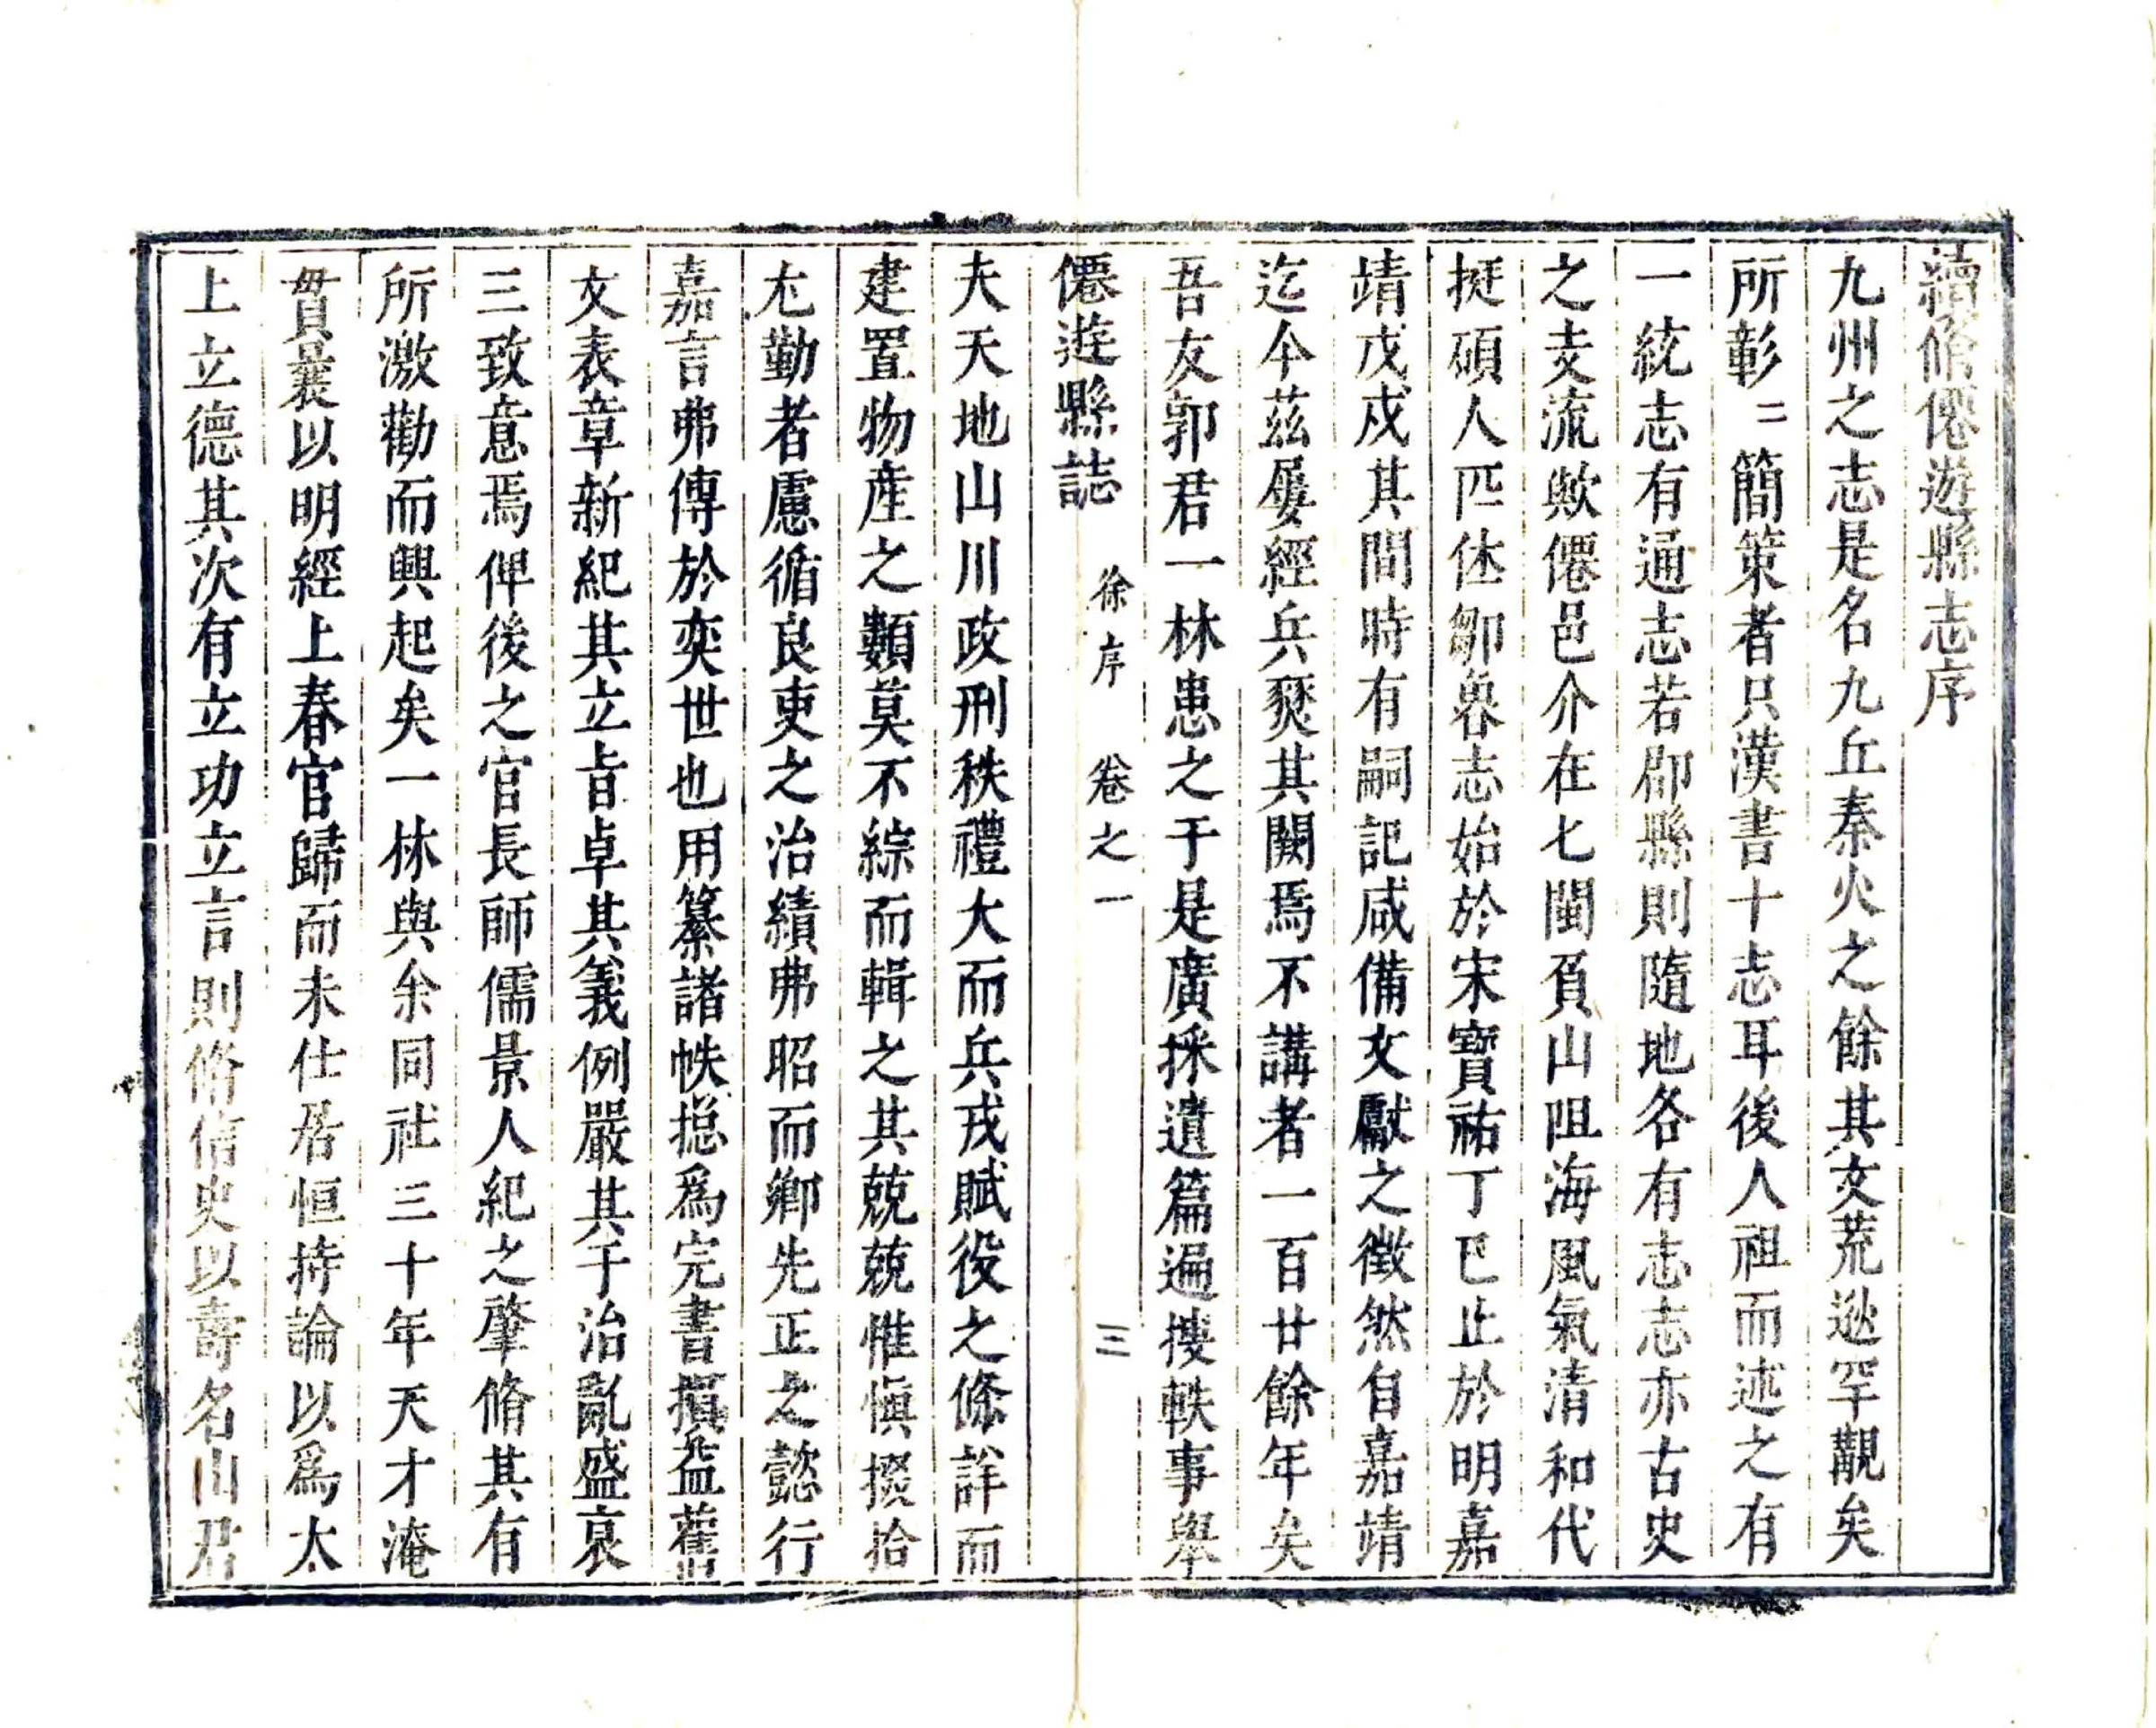 續脩僊遊縣志序
九州之志是名九丘秦火之餘其文荒逖罕覯矣
所彰〻簡策者只漢書十志耳後人祖而述之有
一統志有通志若郡縣則隨地各有志志亦古史
之支流歟僊邑介在七閩負山阻海風氣清和代
挺碩人匹休鄒魯志始於宋寶祐丁巳止於明嘉
靖戊戌其間時有嗣記咸備文獻之徵然自嘉靖
迄今茲屢經兵燹其闕焉不講者一百廿餘年矣
吾友郭君一林患之于是廣採遺篇遍摟軼事舉
僊遊縣誌 徐序 卷之一 三
夫天地山川政刑秩禮大而兵戎賦役之條詳而
建置物產之類莫不綜而輯之其兢兢惟慎掇拾
尤勤者慮循良吏之治績弗昭而鄉先正之懿行
嘉言弗傳於奕世也用纂諸帙揔爲完書損益舊
文表章新紀其立旨卓其義例嚴其于治亂盛衰
三致意焉俾後之官長師儒景人紀之肇脩其有
所激勸而興起矣一林與余同社三十年天才淹
貫曩以明經上春官歸而未仕居恒持論以爲太
上立德其次有立功立言則脩信史以壽名山君